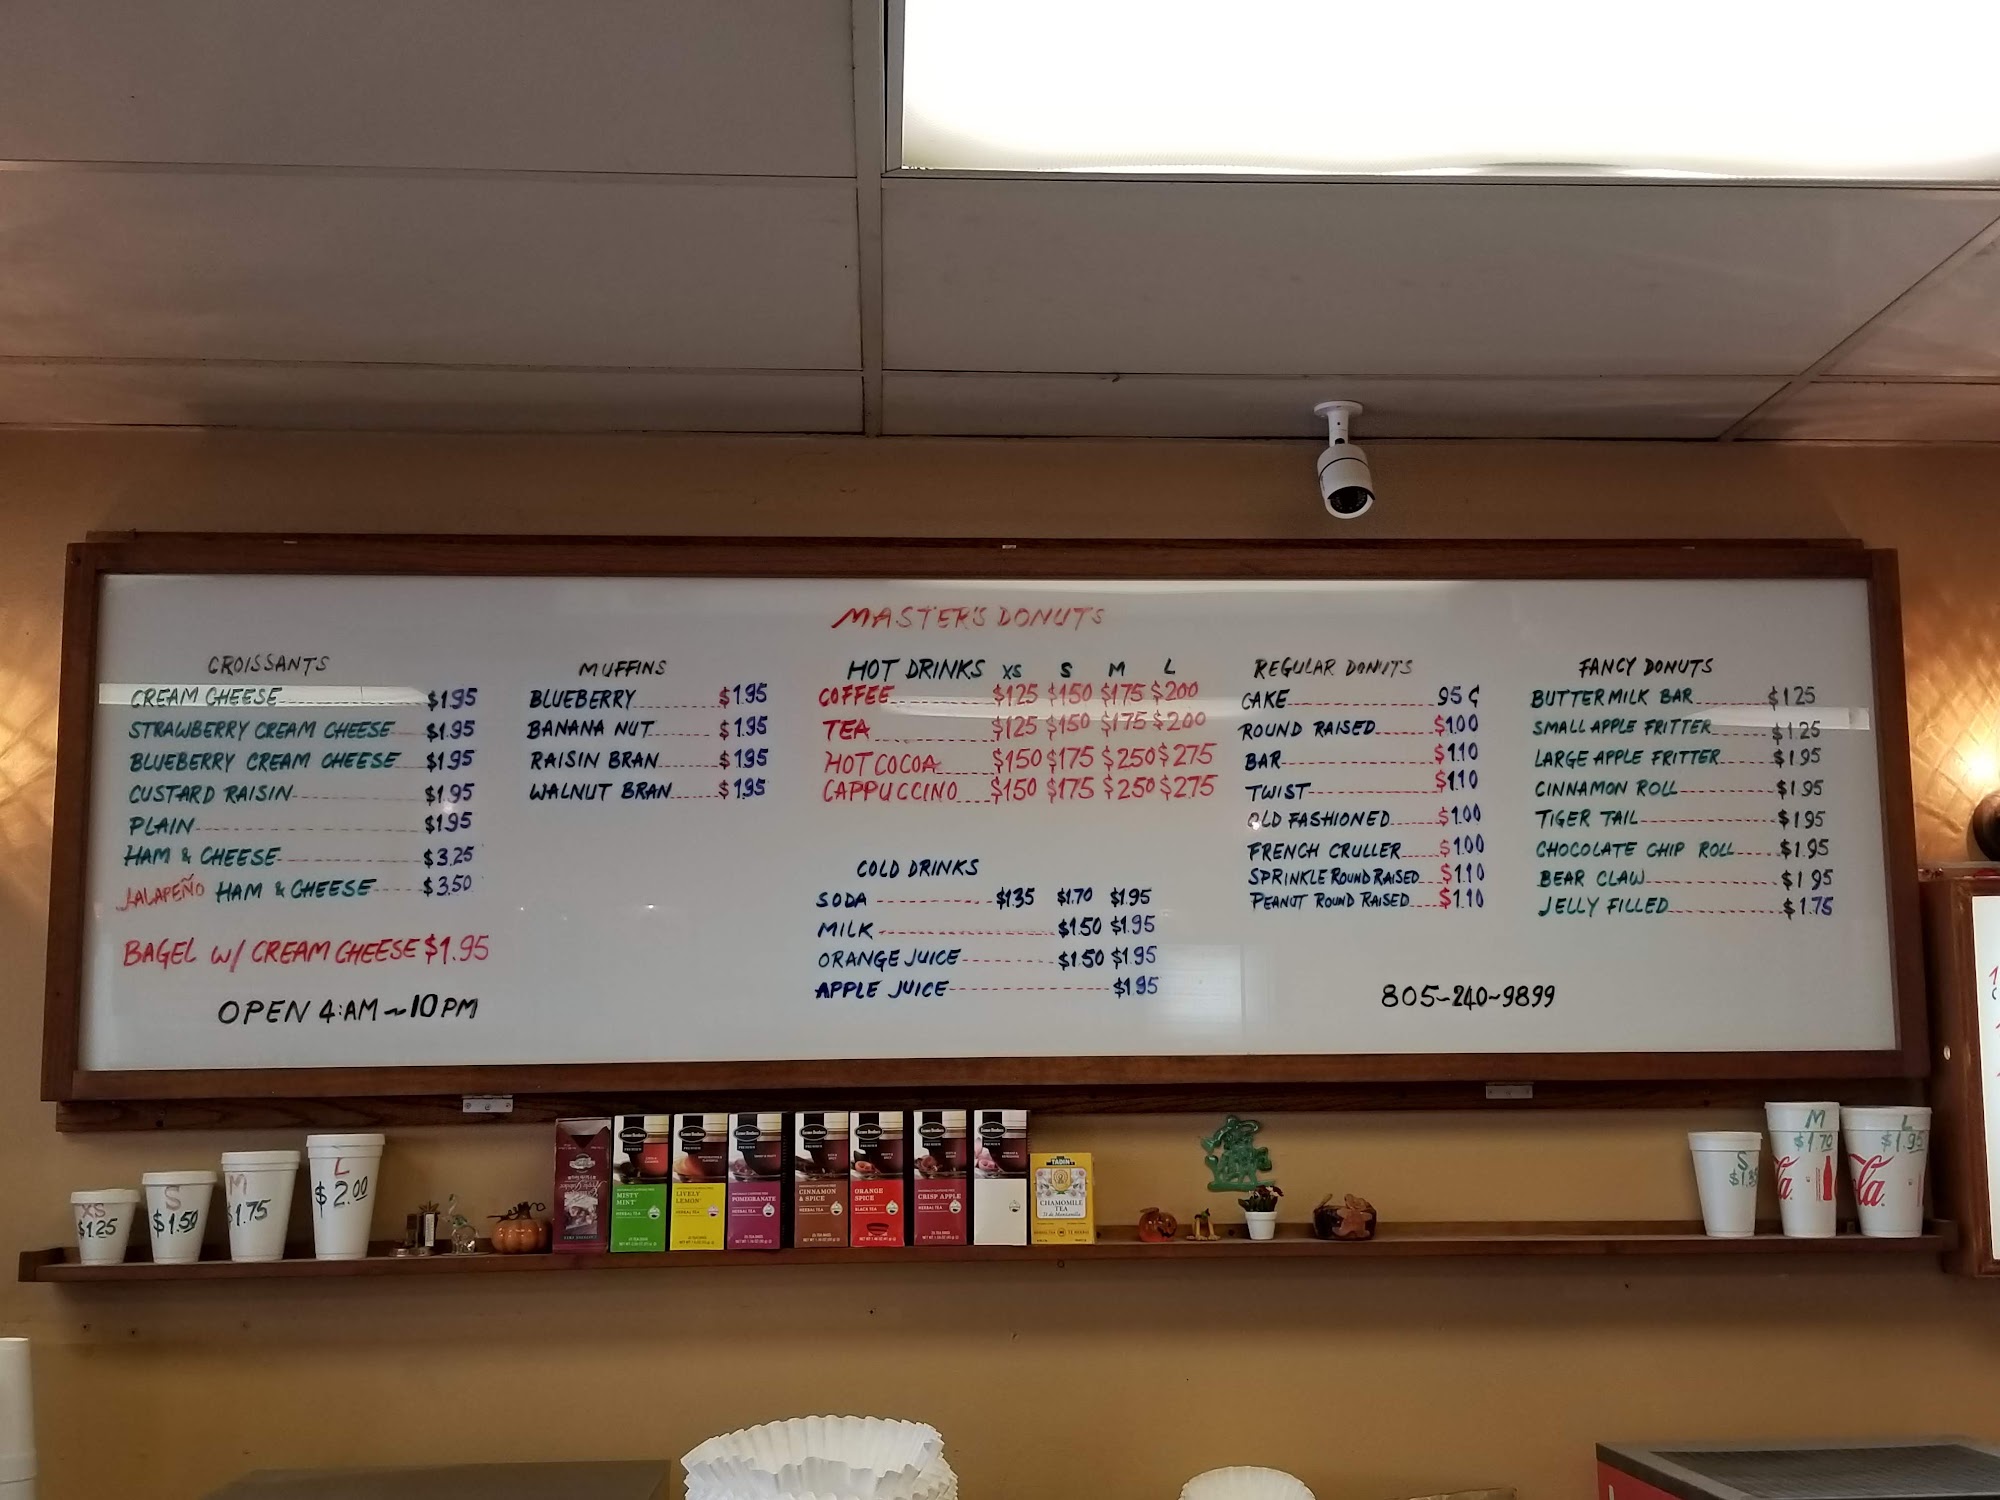 MASTER'S DONUTS
CROISSANTS
CREAM CHEESE $1.95
STRAWBERRY CREAM CHEESE $1.95
BLUEBERRY CREAM CHEESE $1.95
CUSTARD RAISIN $1.95
PLAIN $1.95
HAM & CHEESE $3.25
JALAPEÑO HAM & CHEESE $3.50
BAGEL W/ CREAM CHEESE $1.95
OPEN 4:AM ~ 10PM
MUFFINS
BLUEBERRY $1.95
BANANA NUT $1.95
RAISIN BRAN $1.95
WALNUT BRAN $1.95
HOT DRINKS XS S M L
COFFEE $125 $150 $175 $200
TEA $125 $150 $175 $200
HOT COCOA $150 $175 $250 $275
CAPPUCCINO $150 $175 $250 $275
COLD DRINKS
SODA $1.35 $1.70 $1.95
MILK $1.50 $1.95
ORANGE JUICE $1.50 $1.95
APPLE JUICE $1.95
REGULAR DONUTS
CAKE 95¢
ROUND RAISED $1.00
BAR $1.10
TWIST $1.10
OLD FASHIONED $1.00
FRENCH CRULLER $1.00
SPRINKLE ROUND RAISED $1.10
PEANUT ROUND RAISED $1.10
FANCY DONUTS
BUTTERMILK BAR $1.25
SMALL APPLE FRITTER $1.25
LARGE APPLE FRITTER $1.95
CINNAMON ROLL $1.95
TIGER TAIL $1.95
CHOCOLATE CHIP ROLL $1.95
BEAR CLAW $1.95
JELLY FILLED $1.75
805-240-9899
XS
$1.25
S
$1.50
M
$1.75
L
$2.00
MISTY
MINT
HERBAL TEA
LIVELY
LEMON
HERBAL TEA
POMEGRANATE
HERBAL TEA
CINNAMON
& SPICE
HERBAL TEA
ORANGE
SPICE
BLACK TEA
CRISP APPLE
HERBAL TEA
TADIN
CHAMOMILE
TEA
Té de Manzanilla
S
$1.35
M
$1.70
L
$1.95